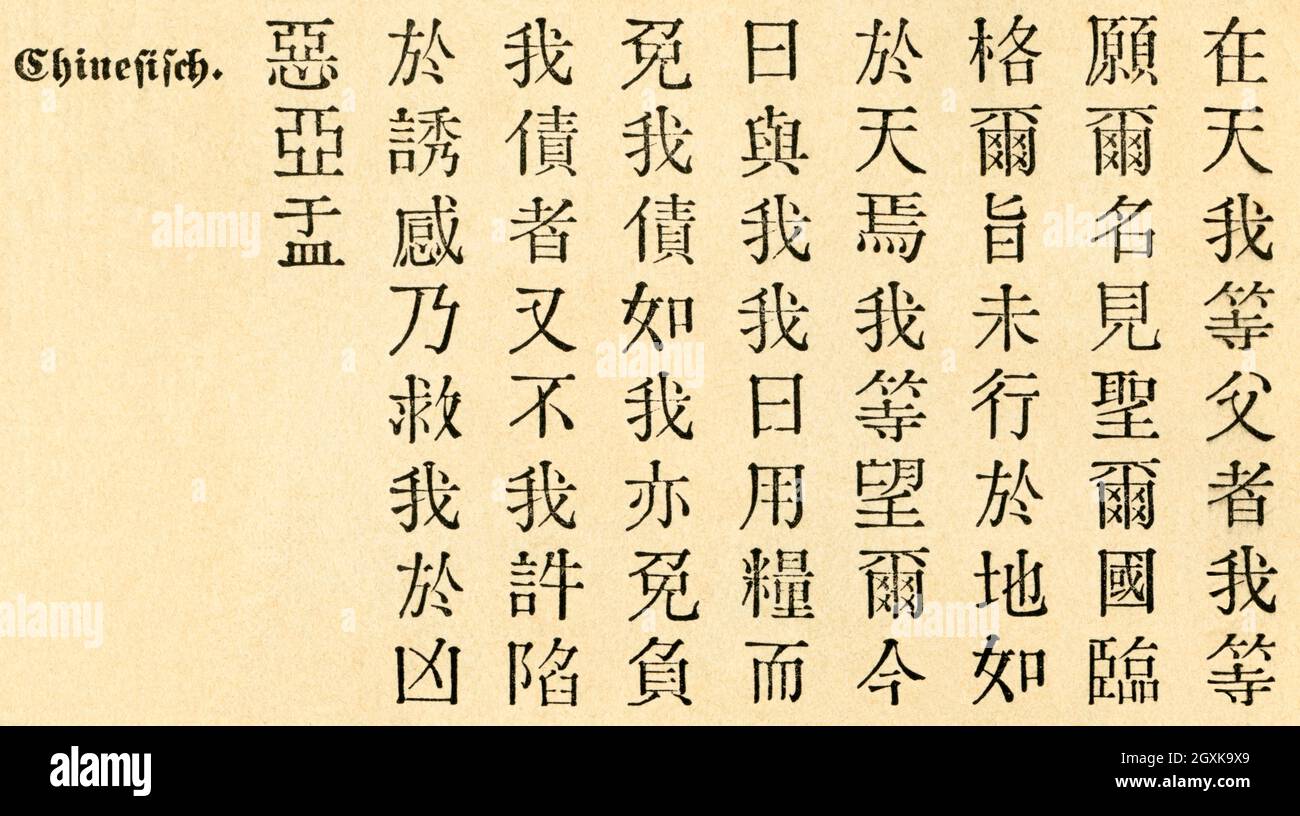 Chinesisch.
在天我等父者我等
願爾名見聖爾國臨
格爾旨未行於地如
於天焉我等望爾今
日與我我日用糧而
免我債如我亦免負
我債者又不我許陷
於誘感乃救我於凶
惡亞盂
alamy
Image ID: 2GXK9X9
www.alamy.com